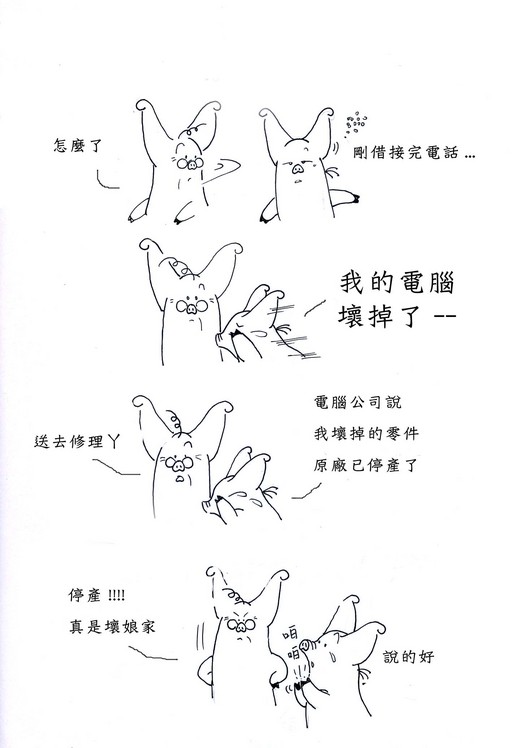 怎麼了
剛借接完電話...
我的電腦
壞掉了--
送去修理ㄚ
電腦公司說
我壞掉的零件
原廠已停產了
停產!!!!
真是壞娘家
咱
咱
說的好